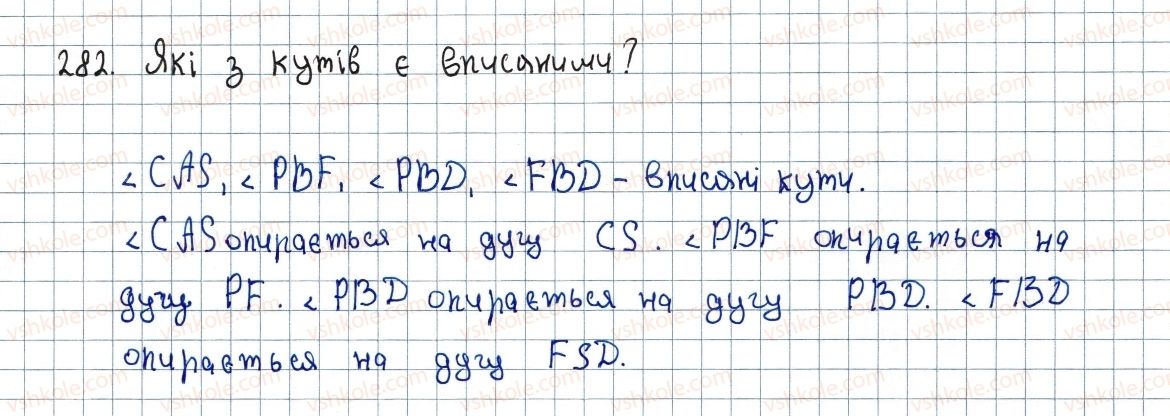 282. Які з кутів є вписаними?
<CAS, <PBF, <PBD, <FBD - вписані кути.
<CAS опирається на дугу CS. <PBF опирається на
дугу PF. <PBD опирається на дугу PBD. <FBD
опирається на дугу FSD.